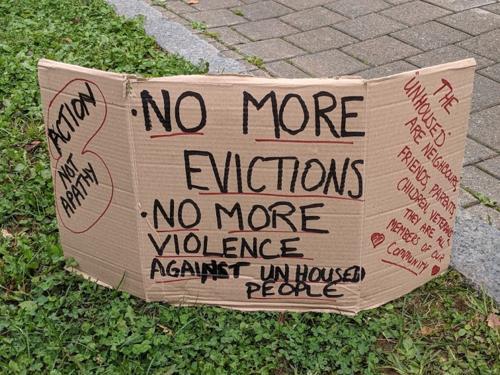 ACTION
NOT
APATHY
·NO MORE
EVICTIONS
·NO MORE
VIOLENCE
AGAINST UNHOUSED
PEOPLE
THE
"UNHOUSED"
ARE NEIGHBOURS,
FRIENDS, PARENTS,
CHILDREN, VETERANS.
THEY ARE ALL
MEMBERS OF OUR
COMMUNITY